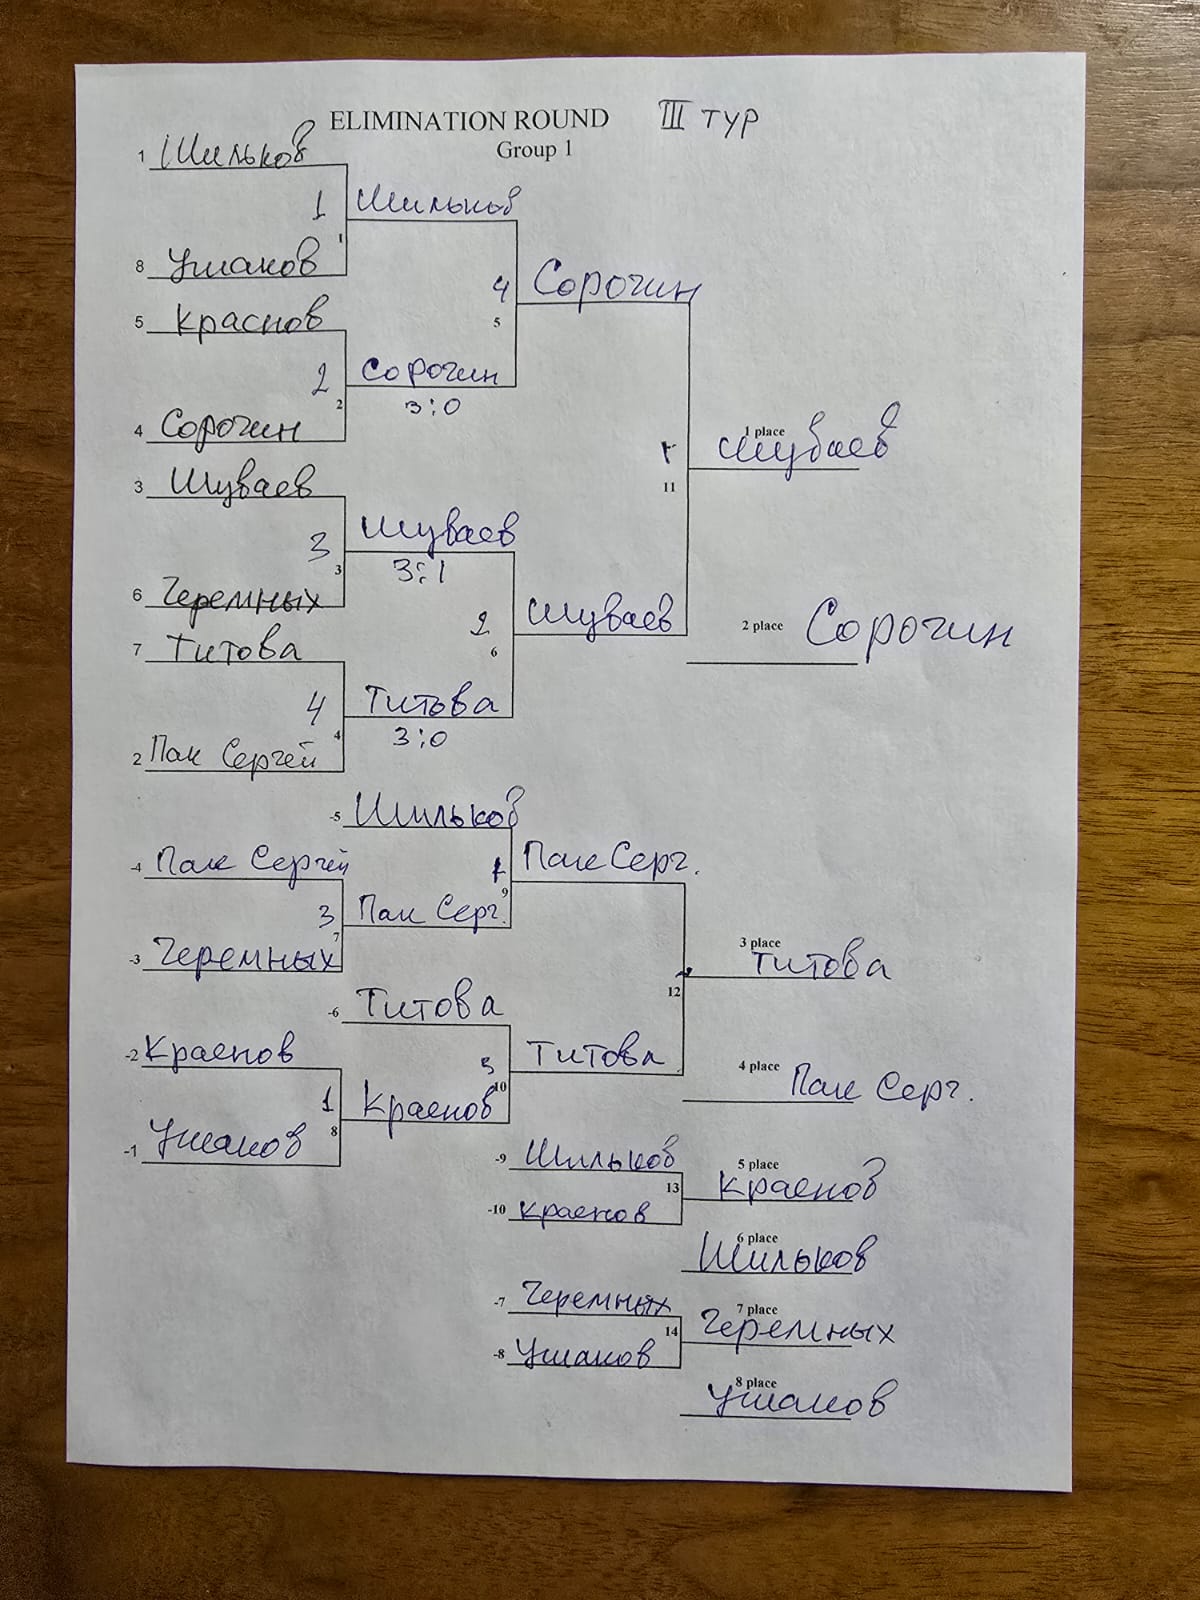 ELIMINATION ROUND III тур
Group 1
1 Шильков
1 Шильков
1
8 Ушаков
4 Сорочин
5 Краснов
5
2 Сорочин
2 3:0
4 Сорочин
1 place
Шуваев
3 Шуваев
11
3 Шуваев
3 3:1
6 Черемных
2 Шуваев
2 place Сорочин
7 Титова
6
4 Титова
4 3:0
2 Пак Сергей
-5 Шильков
-4 Пак Сергей
Пак Серг.
9
3 Пак Серг.
7
-3 Черемных
3 place
Титова
12
-6 Титова
-2 Краснов
3 Титова
4 place Пак Серг.
10
1 Краснов
8
-1 Ушаков
-9 Шильков
5 place
13 Краснов
-10 Краснов
6 place
Шильков
-7 Черемных
7 place
14 Черемных
-8 Ушаков
8 place
Ушаков